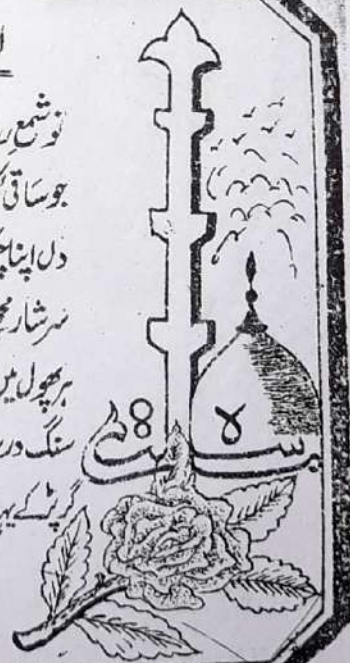 تو شمع ر
جو ساقی ک
دل اپنا چ
سرشار مجھ
ہر پھول میں
سنگ در
گر پڑ کے یہ